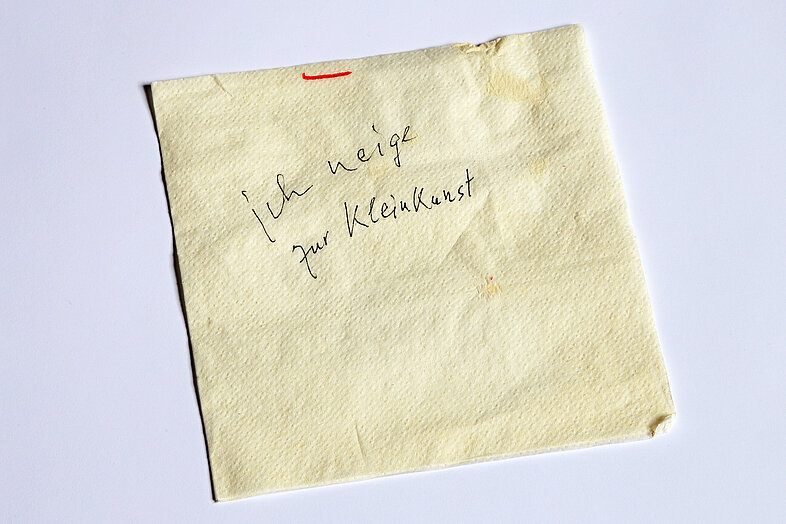 ich neige
zur Kleinkunst